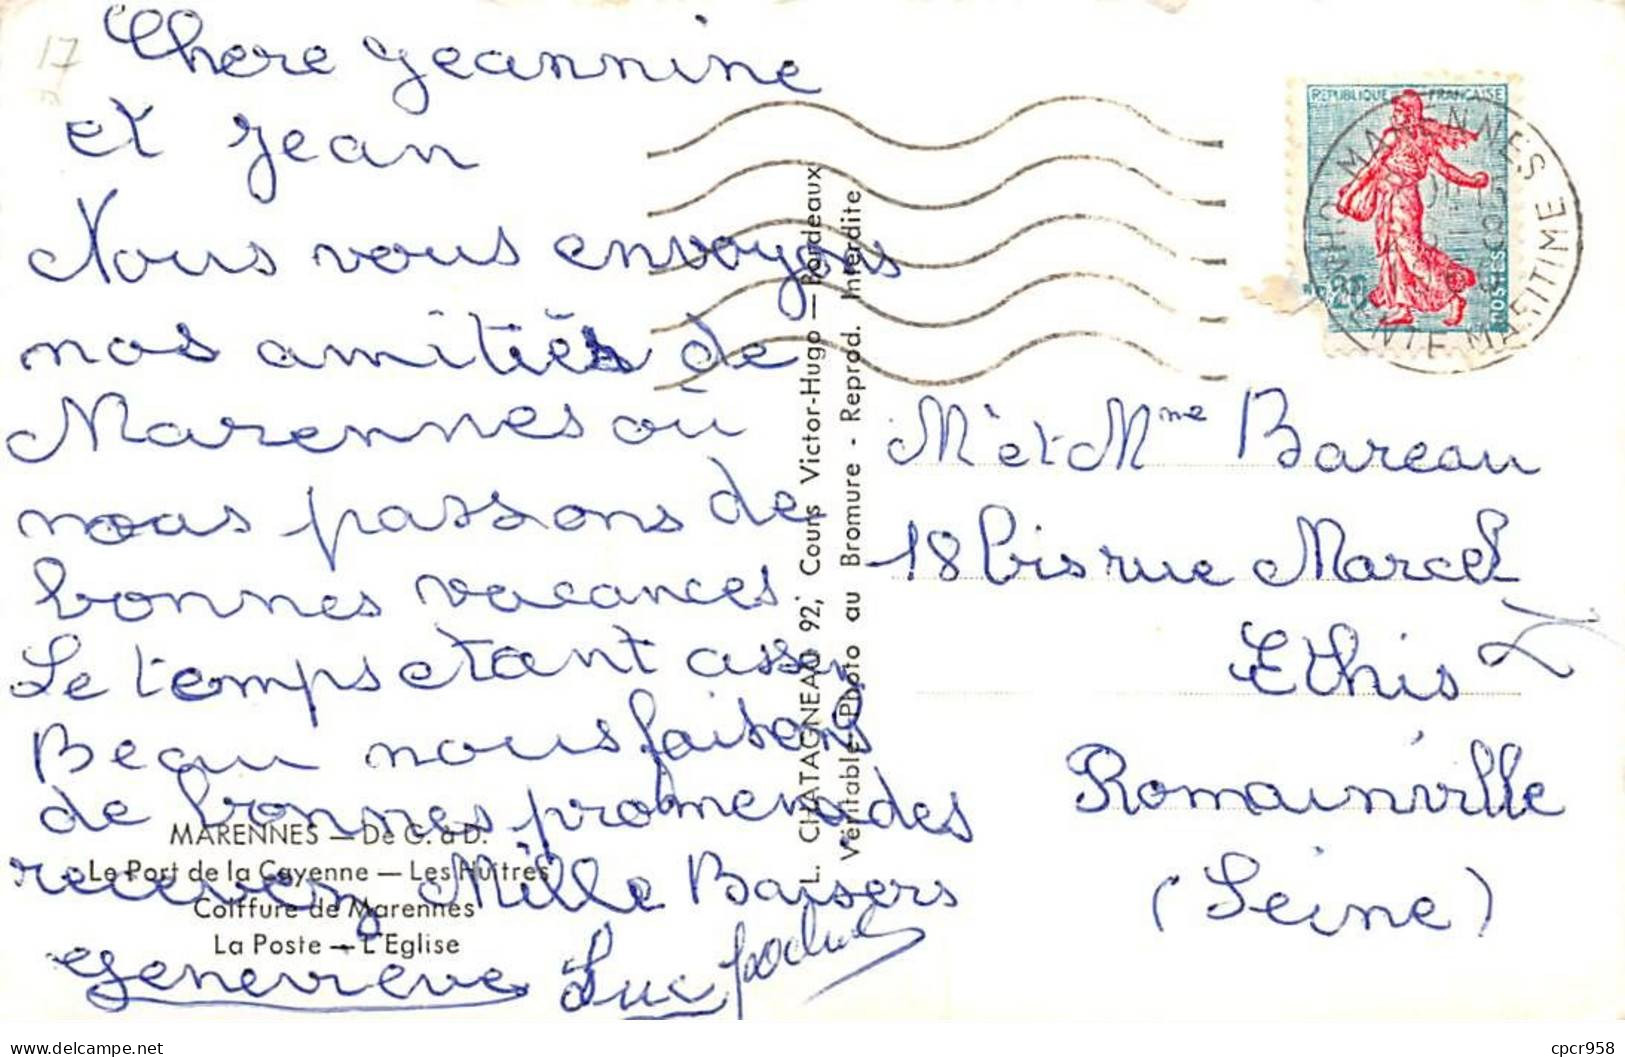 17
Chere Jeannine
et Jean
Nous vous envoyons
nos amitiés de
Marennes où
nous passons de
bonnes vacances
Le temps etant assez
Beau nous faisons
de bonnes promenades
recevez Mille Baisers
Genevieve Luc
MARENNES — De G. à D.
Le Port de la Cayenne — Les Huîtres
Coiffure de Marennes
La Poste — L'Eglise
L. CHATAGNEAU 92, Cours Victor-Hugo — Bordeaux
Véritable Photo au Bromure - Reprod. Interdite
REPUBLIQUE FRANÇAISE
0,20
POSTES
MARENNES
CHARENTE MARITIME
Mr et Mme Bareau
18 bis rue Marcel
Ethis
Romainville
(Seine)
delcampe.net
cpcr958